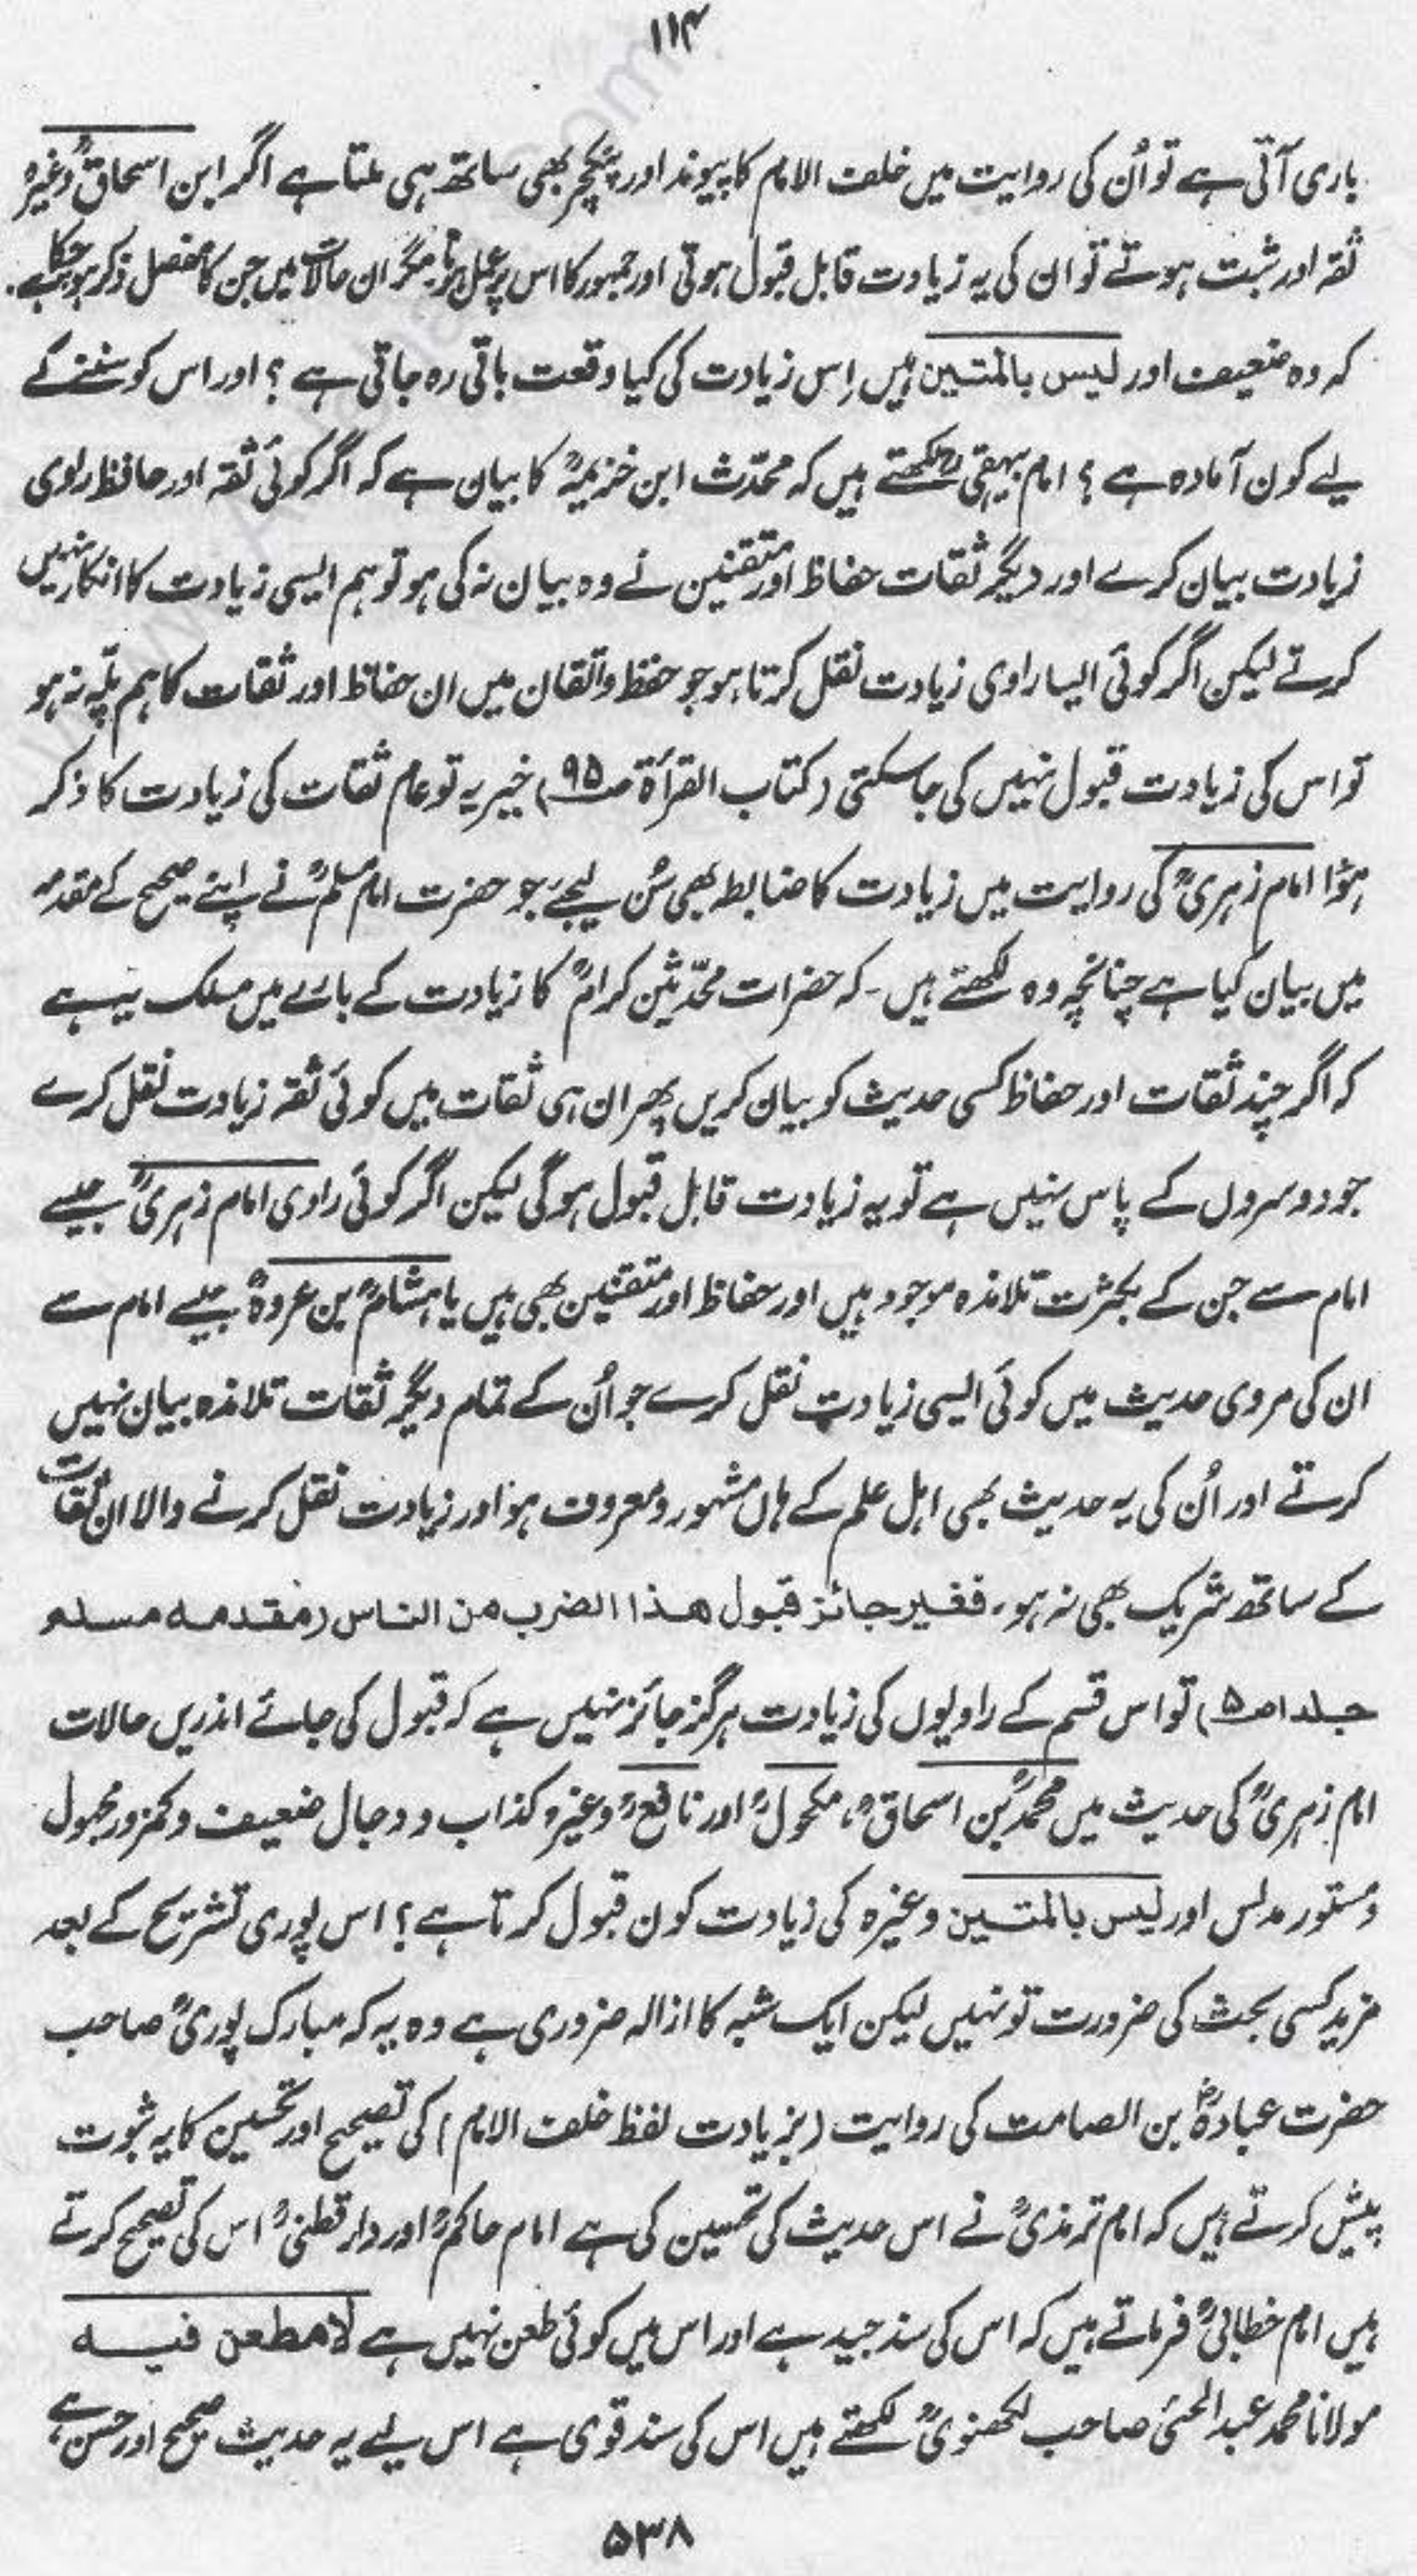 ۱۱۴
باری آتی ہے تو اُن کی روایت میں خلف الامام کا پیوند اور پنکچر بھی ساتھ ہی ملتا ہے اگر ابن اسحاقؒ وغیرہ
ثقہ اور ثبت ہوتے تو ان کی یہ زیادت قابل قبول ہوتی اور جمہور کا اس پر عمل ہوتا مگر ان حالات میں جن کا مفصل ذکر ہو چکا ہے۔
کہ وہ ضعیف اور لیس بالمتین ہیں اِس زیادت کی کیا وقعت باقی رہ جاتی ہے ؟ اور اس کو سننے کے
لیے کون آمادہ ہے ؟ امام بیہقیؒ لکھتے ہیں کہ محدّث ابن خزیمہؒ کا بیان ہے کہ اگر کوئی ثقہ اور حافظ راوی
زیادت بیان کرے اور دیگر ثقات حفاظ اور متقنین نے وہ بیان نہ کی ہو تو ہم ایسی زیادت کا انکار نہیں
کرتے لیکن اگر کوئی ایسا راوی زیادت نقل کرتا ہو جو حفظ و اتقان میں ان حفاظ اور ثقات کا ہم پلّہ نہ ہو
تو اس کی زیادت قبول نہیں کی جا سکتی (کتاب القرأۃ صـ۹۵) خیر یہ تو عام ثقات کی زیادت کا ذکر
ہؤا امام زہریؒ کی روایت میں زیادت کا ضابطہ بھی سُن لیجئے جو حضرت امام مسلمؒ نے اپنے صحیح کے مقدمہ
میں بیان کیا ہے چنانچہ وہ لکھتے ہیں۔ کہ حضرات محدّثین کرامؒ کا زیادت کے بارے میں مسلک یہ ہے
کہ اگر چند ثقات اور حفاظ کسی حدیث کو بیان کریں پھر ان ہی ثقات میں کوئی ثقہ زیادت نقل کرے
جو دوسروں کے پاس نہیں ہے تو یہ زیادت قابل قبول ہوگی لیکن اگر کوئی راوی امام زہریؒ جیسے
امام سے جن کے بکثرت تلامذہ موجود ہیں اور حفاظ اور متقنین بھی ہیں یا ہشامؒ بن عروہؒ جیسے امام سے
ان کی مروی حدیث میں کوئی ایسی زیادت نقل کرے جو اُن کے تمام دیگر ثقات تلامذہ بیان نہیں
کرتے اور اُن کی یہ حدیث بھی اہل علم کے ہاں مشہور و معروف ہو اور زیادت نقل کرنے والا ان ثقات
کے ساتھ شریک بھی نہ ہو، فغیر جائز قبول ھذا الضرب من الناس (مقدمہ مسلم
جلد ا صـ۵) تو اس قسم کے راویوں کی زیادت ہرگز جائز نہیں ہے کہ قبول کی جائے اندریں حالات
امام زہریؒ کی حدیث میں محمدؒ بن اسحاقؒ، مکحولؒ اور نافعؒ وغیرہ کذاب و دجال ضعیف و کمزور مجہول
و مستور مدلس اور لیس بالمتین وغیرہ کی زیادت کون قبول کرتا ہے ؟ اس پوری تشریح کے بعد
مزید کسی بحث کی ضرورت تو نہیں لیکن ایک شبہ کا ازالہ ضروری ہے وہ یہ کہ مبارک پوریؒ صاحب
حضرت عبادہؓ بن الصامت کی روایت (بزیادت لفظ خلف الامام) کی تصحیح اور تحسین کا یہ ثبوت
پیش کرتے ہیں کہ امام ترمذیؒ نے اس حدیث کی تحسین کی ہے امام حاکمؒ اور دارقطنیؒ اس کی تصحیح کرتے
ہیں امام خطابیؒ فرماتے ہیں کہ اس کی سند جید ہے اور اس میں کوئی طعن نہیں ہے لا مطعن فیہ
مولانا محمد عبدالحئی صاحب لکھنویؒ لکھتے ہیں اس کی سند قوی ہے اس لیے یہ حدیث صحیح اور حسن ہے
۵۳۸